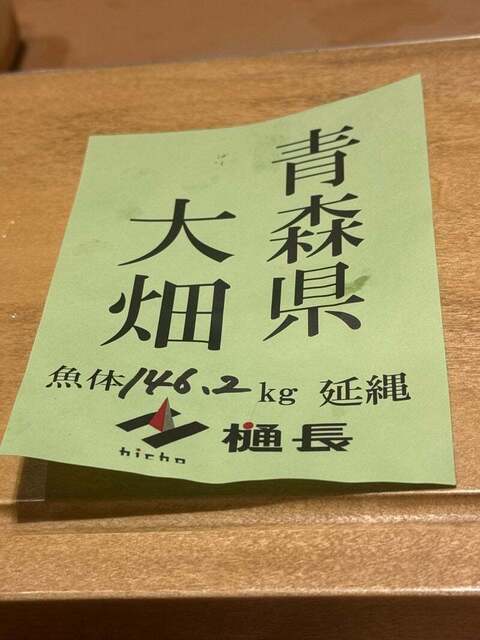 青森県
大畑
魚体146.2kg 延縄
hicho 樋長